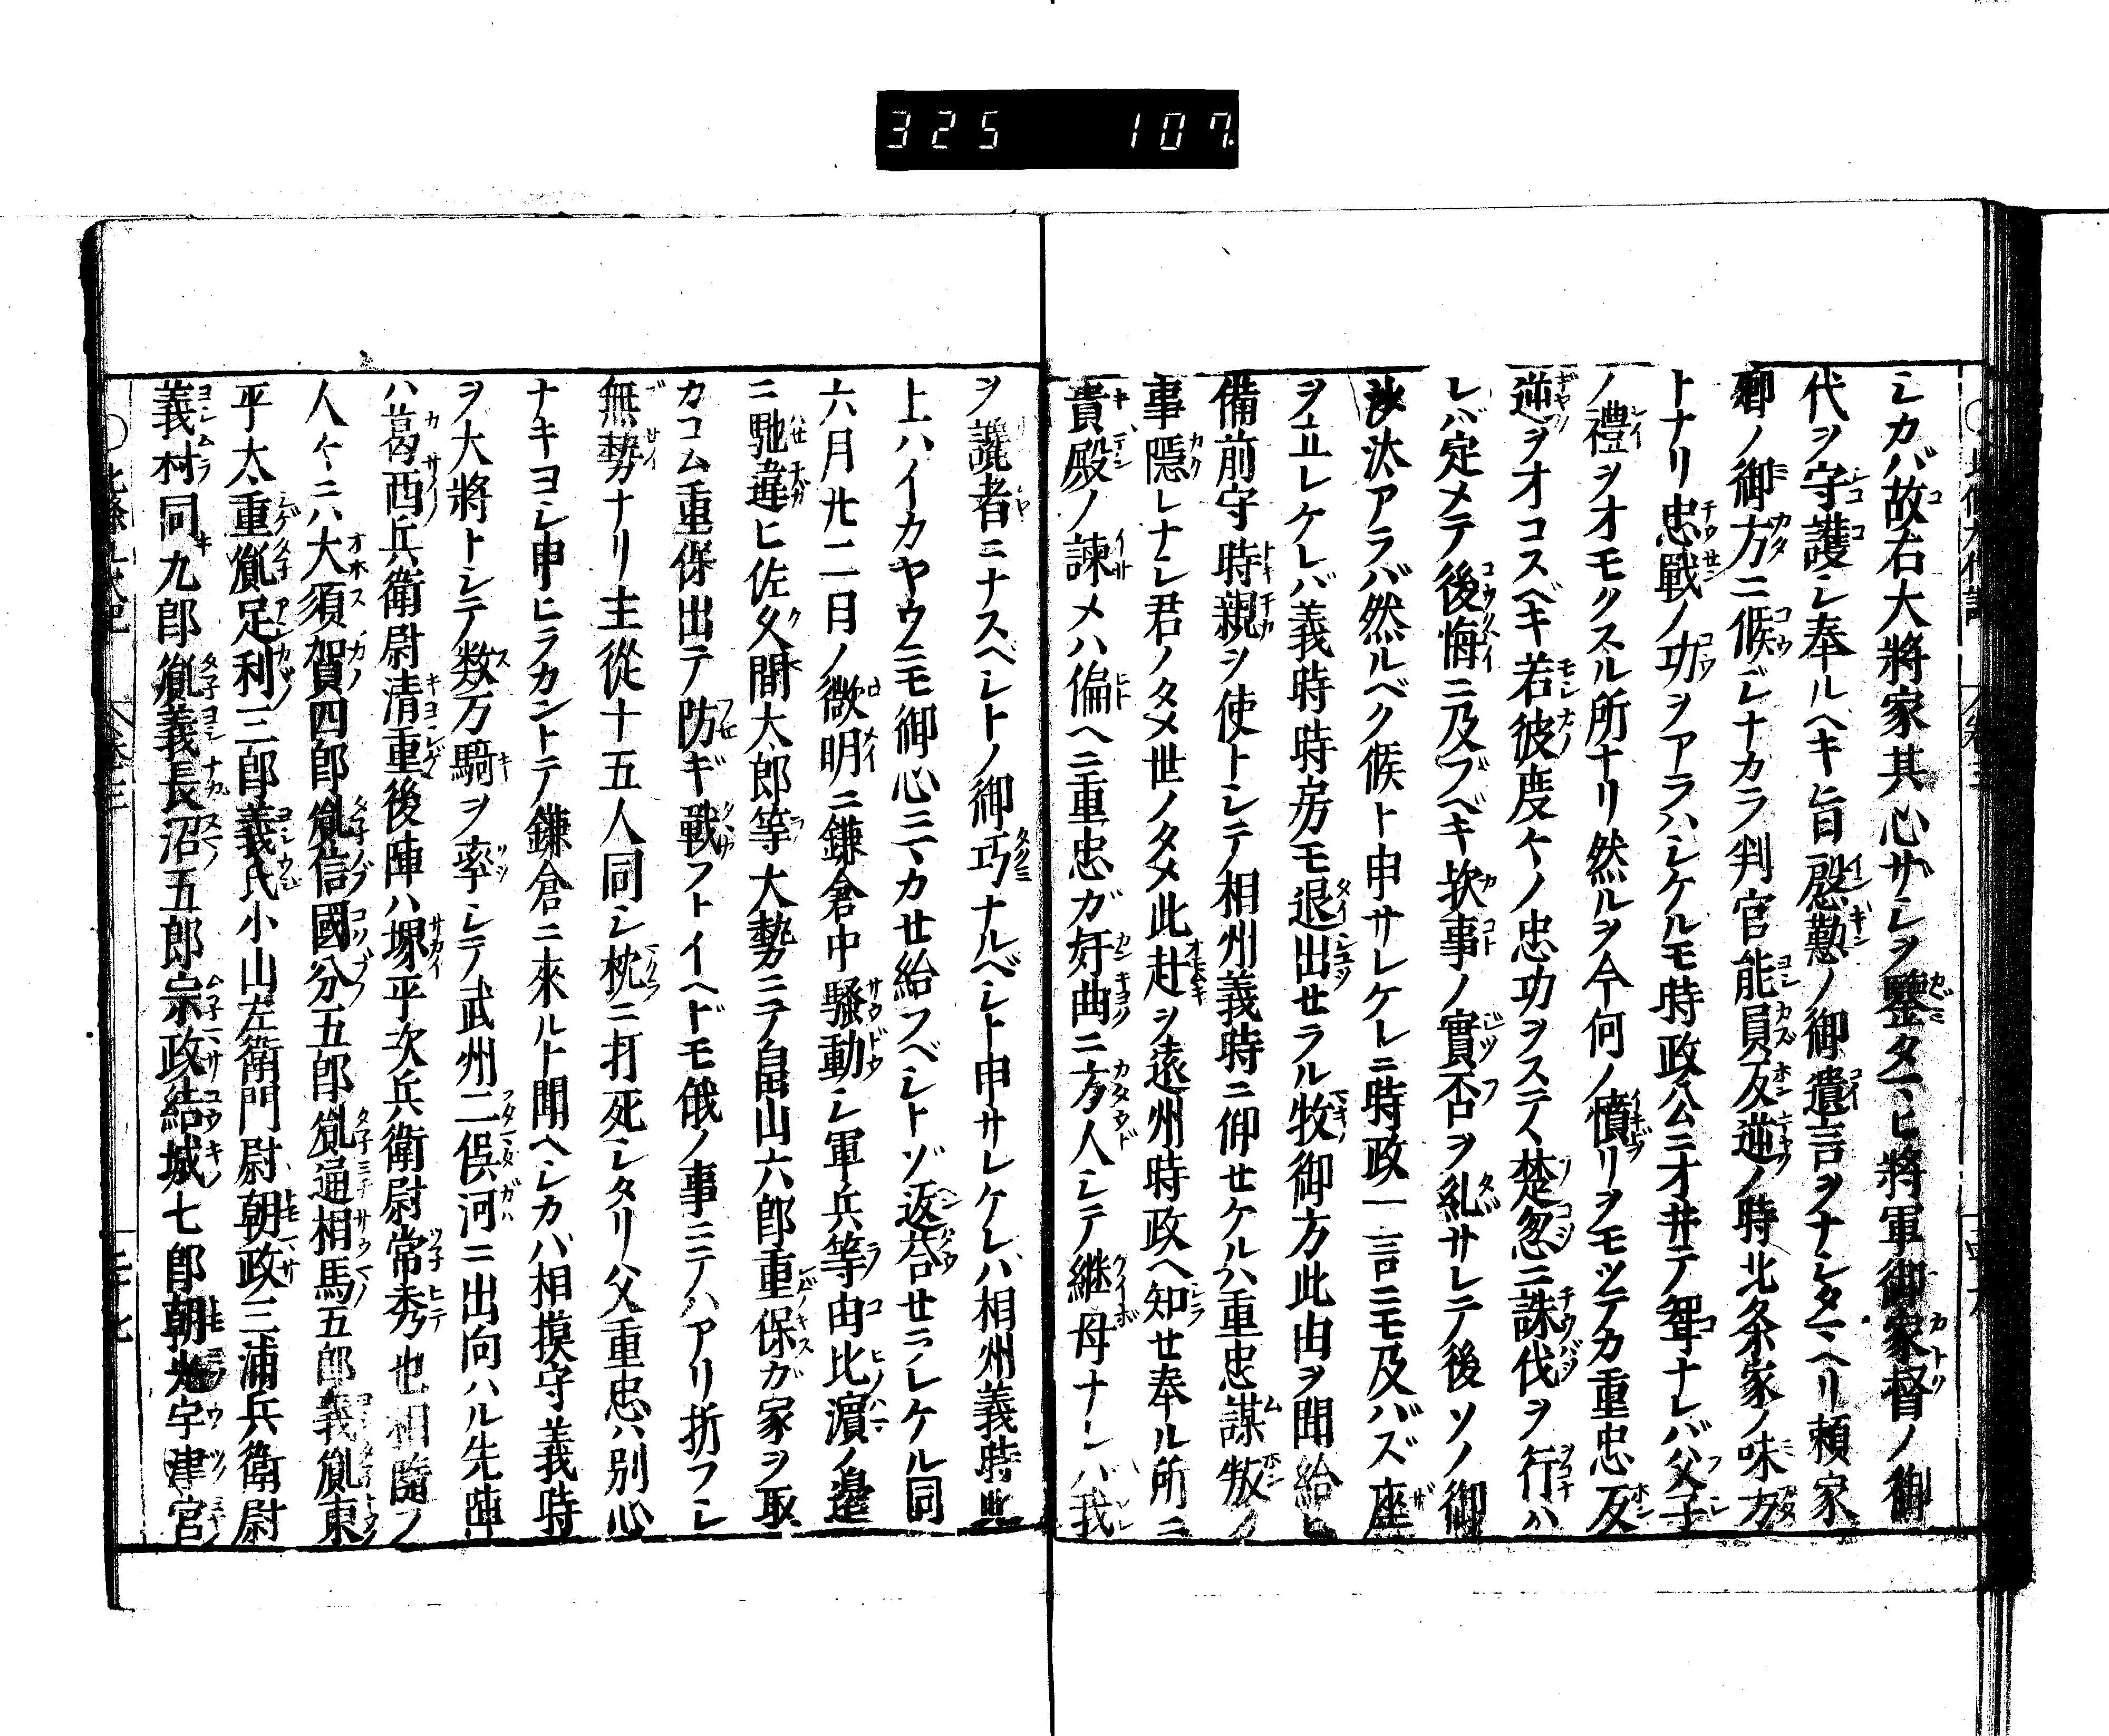 325 107
シカバ故右大將家其心ザシヲ鑒タマヒ將軍御家督ノ御
代ヲ守護シ奉ルヘキ旨慇懃ノ御遺言ヲナシタマヘリ頼家
卿ノ御方ニ候ジナカラ判官能員反逆ノ時北条家ノ味方
トナリ忠戰ノ功ヲアラハシケルモ時政公ニオヰテ聟ナレバ父子
ノ禮ヲオモクスル所ナリ然ルヲ今何ノ憤リヲモツテカ重忠反
逆ヲオコスベキ若彼度々ノ忠功ヲステ楚忽ニ誅伐ヲ行ハ
レバ定メテ後悔ニ及ブベキ歟事ノ實否ヲ糺サレテ後ソノ御
沙汰アラバ然ルベク候ト申サレケレニ時政一言ニモ及バズ座
ヲ立レケレバ義時時房モ退出セラル牧御方此由ヲ聞給ヒ
備前守時親ヲ使トシテ相州義時ニ仰セケルハ重忠謀叛ノ
事隱レナシ君ノタメ世ノタメ此赴ヲ遠州時政ヘ知セ奉ル所ニ
貴殿ノ諫メハ偏ヘニ重忠ガ奸曲ニ方人シテ継母ナレハ我
ヲ讒者ニナスベシトノ御巧ナルベシト申サレケレハ相州義時此
上ハイカヤウニモ御心ニマカセ給フベシトゾ返荅セラレケル同
六月廿二日ノ微明ニ鎌倉中騒動シ軍兵等由比濵ノ邉
ニ馳違ヒ佐久間太郎等大勢ニテ畠山六郎重保ガ家ヲ取
カコム重保出テ防ギ戰フトイヘドモ俄ノ事ニテハアリ折フシ
無勢ナリ主從十五人同シ枕ニ打死シタリ父重忠ハ別心
ナキヨシ申ヒラカントテ鎌倉ニ來ルト聞ヘシカバ相摸守義時
ヲ大將トシテ数万騎ヲ率シテ武州二俣河ニ出向ハル先陣
ハ葛西兵衛尉清重後陣ハ堺平次兵衛尉常秀也相隨フ
人々ニハ大須賀四郎胤信國分五郎胤通相馬五郎義胤東
平太重胤足利三郎義氏小山左衛門尉朝政三浦兵衛尉
義村同九郎胤義長沼五郎宗政結城七郎朝光宇津宮